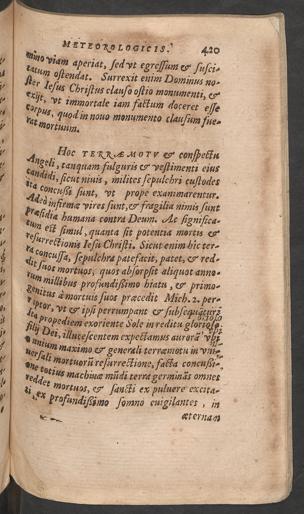 METEOROLOGICIS. 420
mino viam aperiat, sed vt egressum & susci-
tatum ostendat. Surrexit enim Dominus no-
ster Iesus Christus clauso ostio monumenti, &
exijt, vt immortale iam factum doceret esse
corpus, quod in nouo monumento clausum fue-
rat mortuum.
Hoc TERRÆMOTV & conspectu
Angeli, tanquam fulguris & vestimenti eius
candidi, sicut niuis, milites sepulchri custodes
ita concussi sunt, vt prope exanimarentur.
Adeò infirmæ vires sunt, & fragilia nimis sunt
præsidia humana contra Deum. Ac significa-
tum est simul, quanta sit potentia mortis &
resurrectionis Iesu Christi. Sicut enim hic ter-
ra concussa, sepulchra patefacit, patet, & red-
dit suos mortuos, quos absorpsit aliquot anno-
rum millibus profundißimo hiatu, & primo-
genitus à mortuis suos præcedit Mich. 2. per-
ruptor, vt & ipsi perrumpant &
ita propediem exoriente Sole in reditu glorioso
filij Dei, illucescentem expectamus aurorã
omnium maximo & generali terræmotu in vni-
uersali mortuorũ resurrectione, facta concussi-
one totius machinæ mũdi terra germinãs omnes
reddet mortuos, & sancti ex puluere excita-
ti, ex profundißimo somno euigilantes, in
æternam